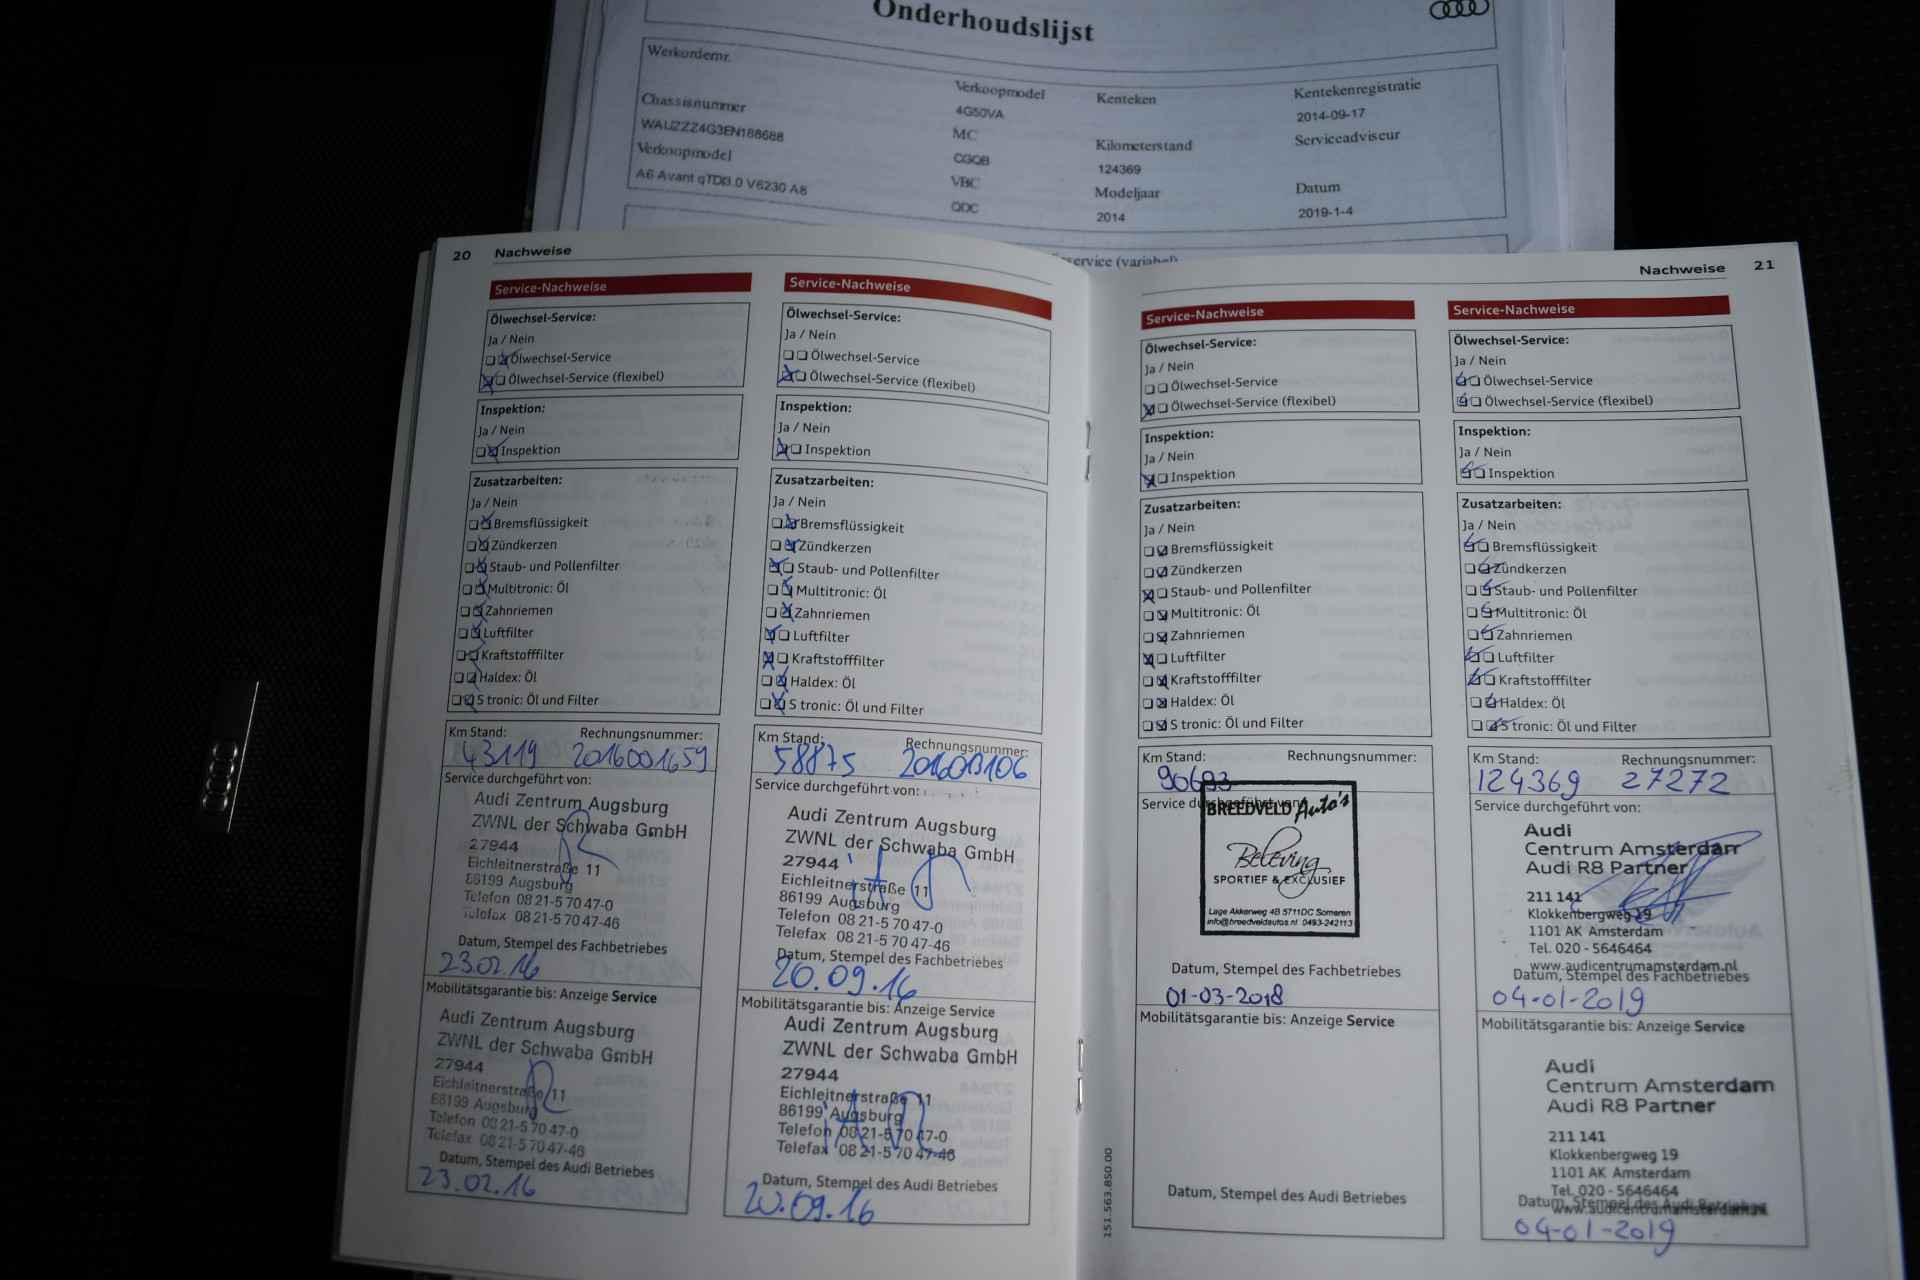 Onderhoudslijst
Werkordernr.
Chassisnummer
WAUZZZ4G3EN188688
Verkoopmodel
A6 Avant qTDI3.0 V6230 A8
Verkoopmodel
4G50VA
MC
CGQB
VBC
QDC
Kenteken
Kilometerstand
124369
Modeljaar
2014
Kentekenregistratie
2014-09-17
Serviceadviseur
Datum
2019-1-4
service (variabel)
20 Nachweise
Service-Nachweise
Ölwechsel-Service:
Ja / Nein
Ölwechsel-Service
Ölwechsel-Service (flexibel)
Inspektion:
Ja / Nein
Inspektion
Zusatzarbeiten:
Ja / Nein
Bremsflüssigkeit
Zündkerzen
Staub- und Pollenfilter
Multitronic: Öl
Zahnriemen
Luftfilter
Kraftstofffilter
Haldex: Öl
S tronic: Öl und Filter
Km Stand: Rechnungsnummer:
43119 2016001659
Service durchgeführt von:
Audi Zentrum Augsburg
ZWNL der Schwaba GmbH
27944
Eichleitnerstraße 11
86199 Augsburg
Telefon 08 21-5 70 47-0
Telefax 08 21-5 70 47-46
Datum, Stempel des Fachbetriebes
23.02.16
Mobilitätsgarantie bis: Anzeige Service
Audi Zentrum Augsburg
ZWNL der Schwaba GmbH
27944
Eichleitnerstraße 11
86199 Augsburg
Telefon 08 21-5 70 47-0
Telefax 08 21-5 70 47-46
Datum, Stempel des Audi Betriebes
23.02.16
Service-Nachweise
Ölwechsel-Service:
Ja / Nein
Ölwechsel-Service
Ölwechsel-Service (flexibel)
Inspektion:
Ja / Nein
Inspektion
Zusatzarbeiten:
Ja / Nein
Bremsflüssigkeit
Zündkerzen
Staub- und Pollenfilter
Multitronic: Öl
Zahnriemen
Luftfilter
Kraftstofffilter
Haldex: Öl
S tronic: Öl und Filter
Km Stand: Rechnungsnummer:
58875
Service durchgeführt von:
Audi Zentrum Augsburg
ZWNL der Schwaba GmbH
27944
Eichleitnerstraße 11
86199 Augsburg
Telefon 08 21-5 70 47-0
Telefax 08 21-5 70 47-46
Datum, Stempel des Fachbetriebes
20.09.16
Mobilitätsgarantie bis: Anzeige Service
Audi Zentrum Augsburg
ZWNL der Schwaba GmbH
27944
Eichleitnerstraße 11
86199 Augsburg
Telefon 08 21-5 70 47-0
Telefax 08 21-5 70 47-46
Datum, Stempel des Audi Betriebes
20.09.16
Nachweise 21
Service-Nachweise
Ölwechsel-Service:
Ja / Nein
Ölwechsel-Service
Ölwechsel-Service (flexibel)
Inspektion:
Ja / Nein
Inspektion
Zusatzarbeiten:
Ja / Nein
Bremsflüssigkeit
Zündkerzen
Staub- und Pollenfilter
Multitronic: Öl
Zahnriemen
Luftfilter
Kraftstofffilter
Haldex: Öl
S tronic: Öl und Filter
Km Stand: Rechnungsnummer:
90693
Service durchgeführt von:
BREEDVELD Auto's
Beleving
SPORTIEF & EXCLUSIEF
Lage Akkerweg 4B 5711DC Someren
info@breedveldautos.nl 0493-242113
Datum, Stempel des Fachbetriebes
01-03-2018
Mobilitätsgarantie bis: Anzeige Service
Datum, Stempel des Audi Betriebes
151.563.850.00
Service-Nachweise
Ölwechsel-Service:
Ja / Nein
Ölwechsel-Service
Ölwechsel-Service (flexibel)
Inspektion:
Ja / Nein
Inspektion
Zusatzarbeiten:
Ja / Nein
Bremsflüssigkeit
Zündkerzen
Staub- und Pollenfilter
Multitronic: Öl
Zahnriemen
Luftfilter
Kraftstofffilter
Haldex: Öl
S tronic: Öl und Filter
Km Stand: Rechnungsnummer:
124369 27272
Service durchgeführt von:
Audi
Centrum Amsterdam
Audi R8 Partner
211 141
Klokkenbergweg 19
1101 AK Amsterdam
Tel. 020 - 5646464
www.audicentrumamsterdam.nl
Datum, Stempel des Fachbetriebes
04-01-2019
Mobilitätsgarantie bis: Anzeige Service
Audi
Centrum Amsterdam
Audi R8 Partner
211 141
Klokkenbergweg 19
1101 AK Amsterdam
Tel. 020 - 5646464
Datum, Stempel des Audi Betriebes
www.audicentrumamsterdam.nl
04-01-2019